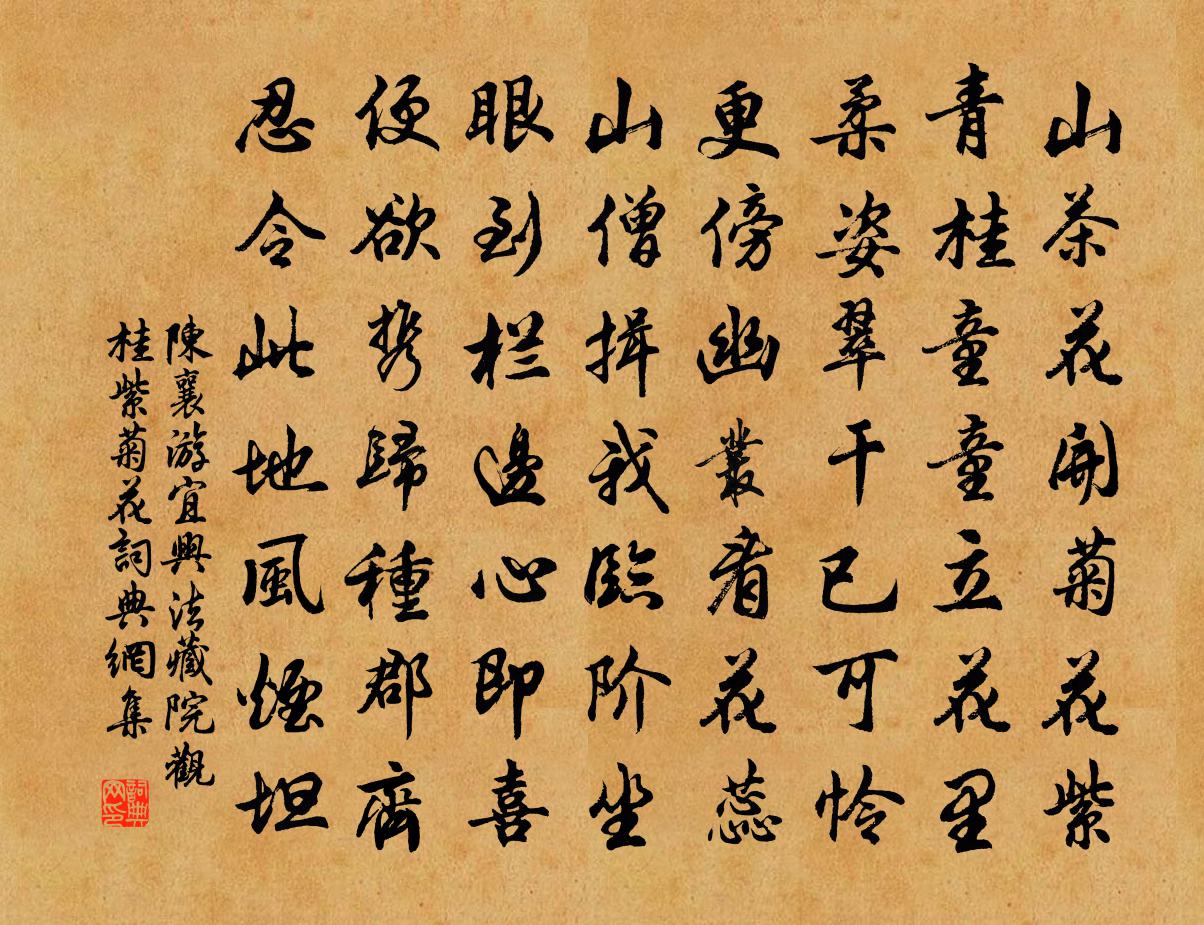 山茶花開菊花紫
青桂童童立花里
柔姿翠干已可怜
更傍幽叢看花蕊
山僧揖我臨阶坐
眼到栏邊心即喜
便欲携歸種郡齋
忍令此地風煙坦
陳襄游宜興法藏院觀
桂紫菊花詞典網集
詞典
网印